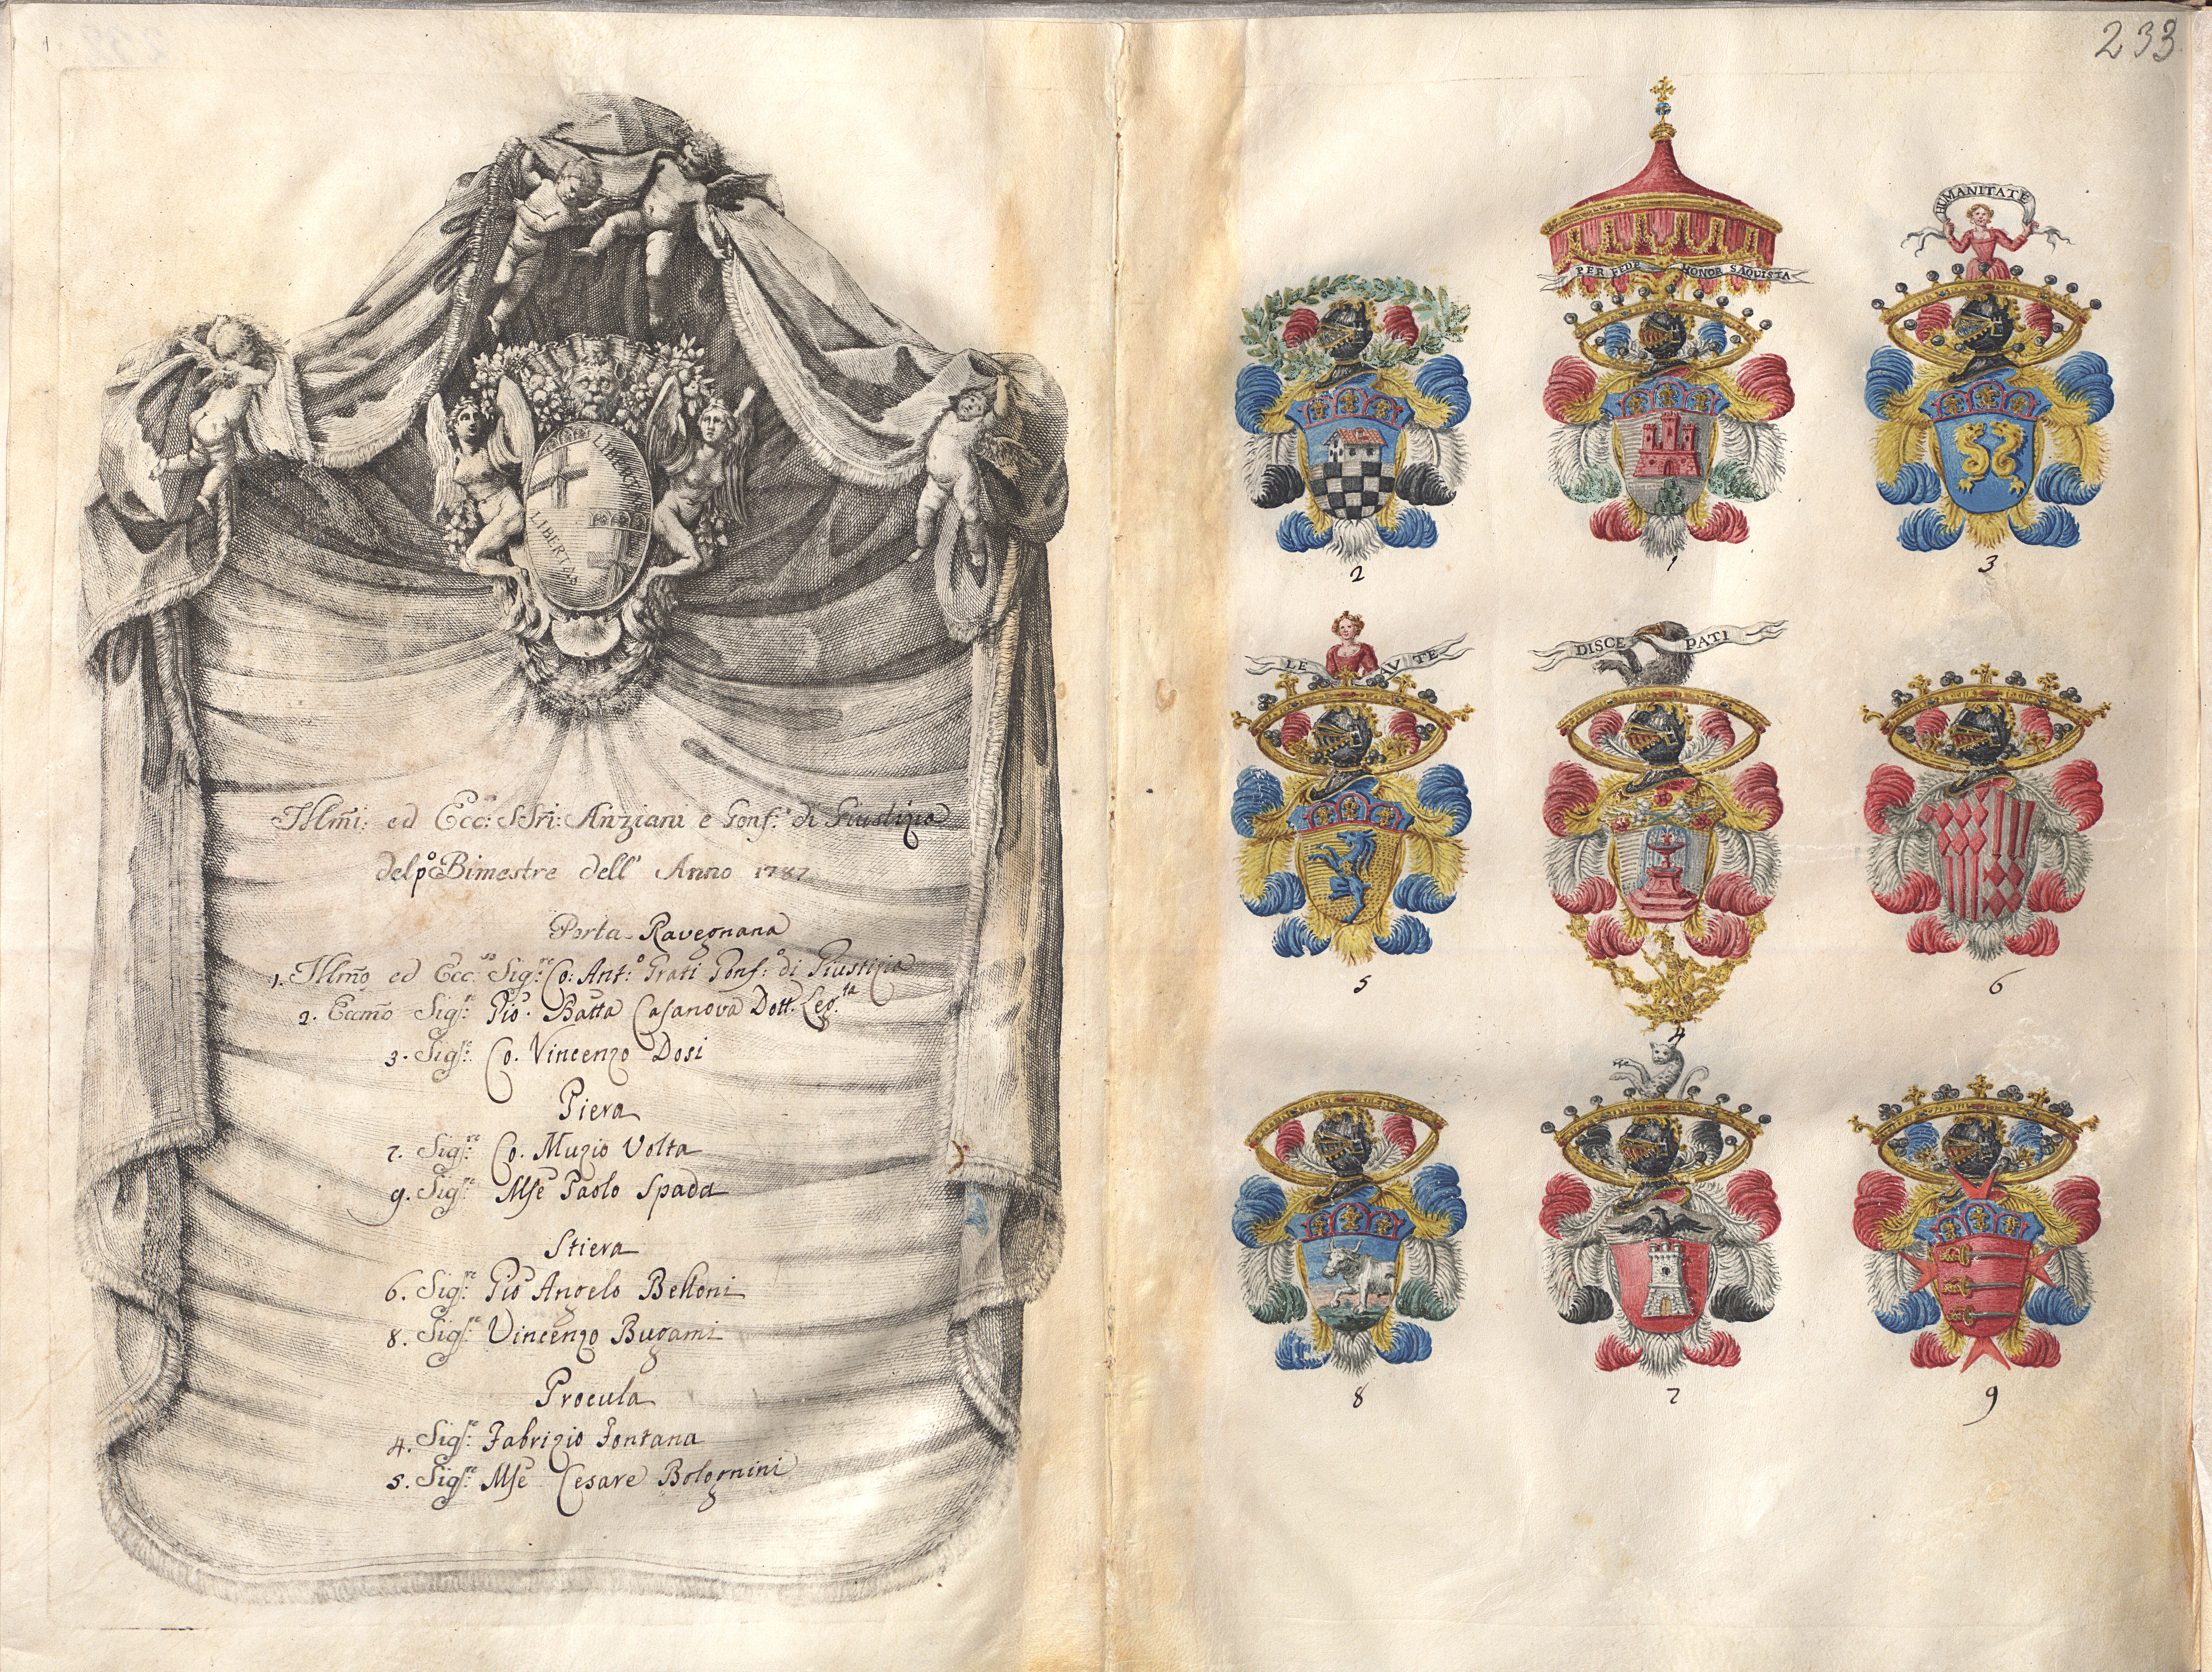 233
LIBERTAS
Ill.mi: ed Ecc: SSri: Anziani e Gonf: di Giustizia
del pº Bimestre dell' Anno 1787
Porta Ravegnana
1. Ill.mo ed Ecc.so Sig.re Co: Ant.º Grati Gonf:º di Giustizia
2. Eccmo Sig.re Gio. Batta Casanova Dott. Leg.ta
3. Sig.re Co. Vincenzo Dosi
Piera
7. Sig.re Co. Muzio Volta
9. Sig.re Mse Paolo Spada
Stiera
6. Sig.re Gio Angelo Belloni
8. Sig.re Vincenzo Bugami
Procula
4. Sig.re Fabrizio Fontana
5. Sig.re Mse Cesare Bolognini
HUMANITATE
PER FEDE HONOR SAQUISTA
2
1
3
LE V TE
DISCE PATI
5
4
6
8
7
9